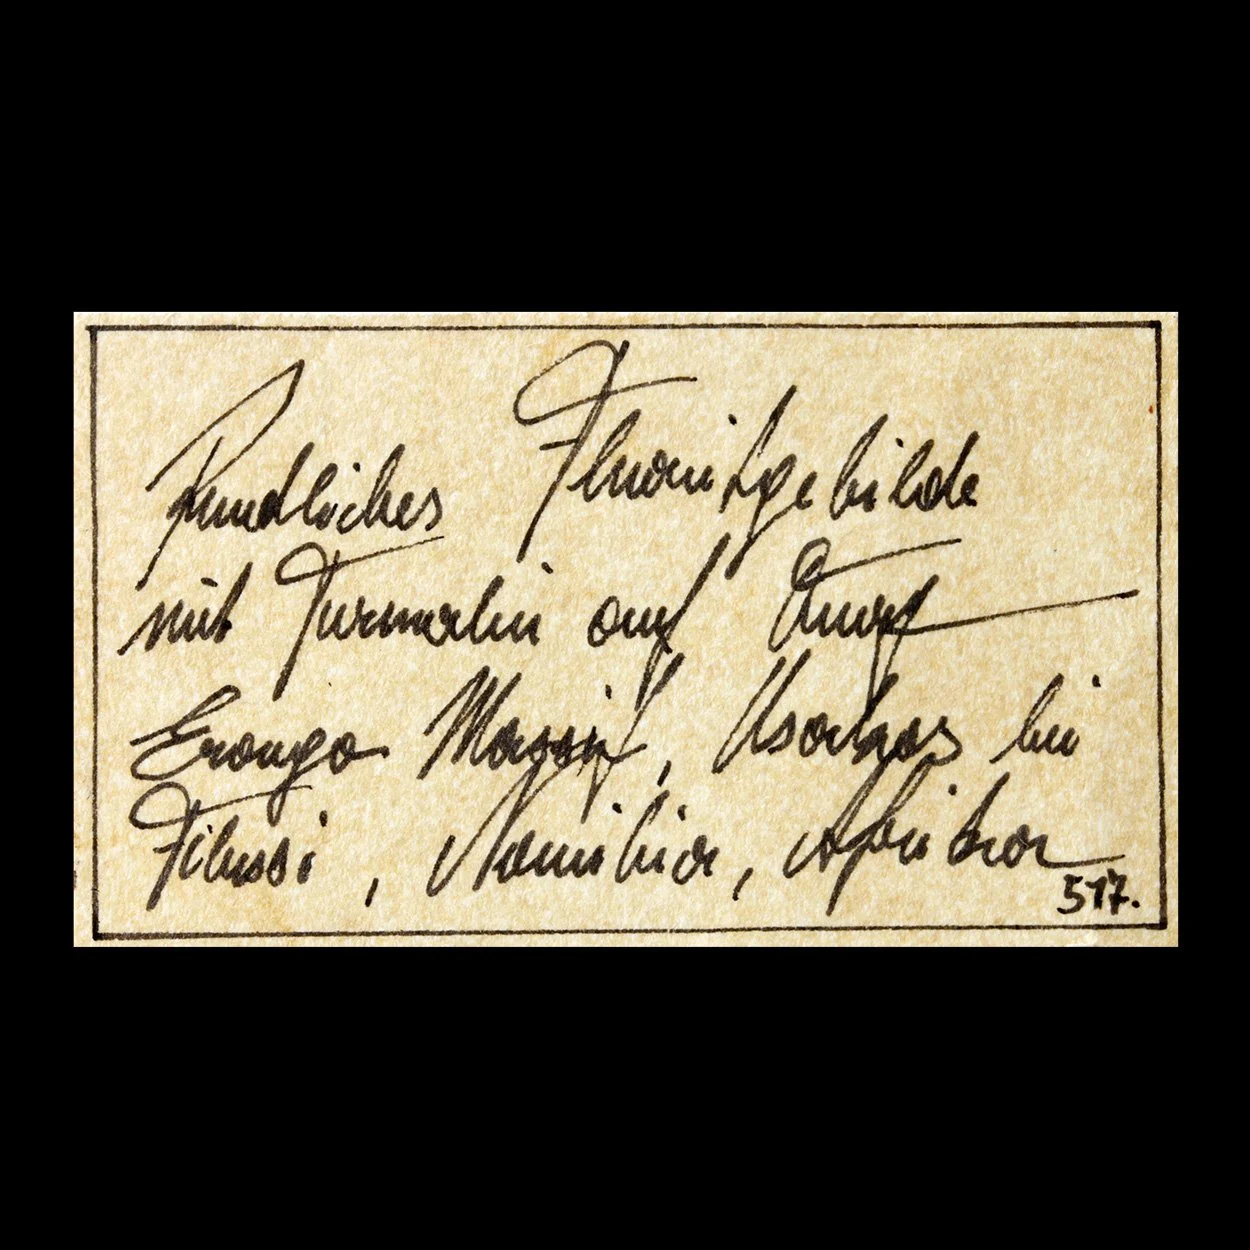 Rundliches Fluoritgebilde
mit Turmalin auf Quarz
Erongo Massif, Usakos bei
Tibussi, Namibia, Afrika
517.